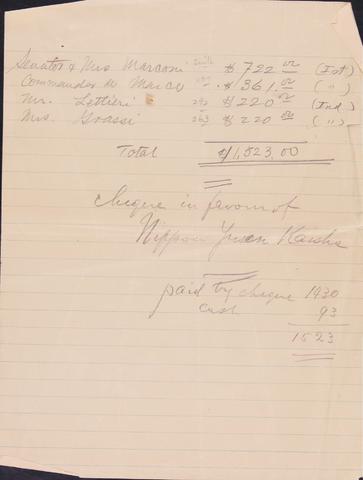 Senator & Mrs Marconi $722.00 (Ist)
Commander de Marco " $361.00 (")
Mr. Lettieri 262 $220.00 (Ind)
Mrs. Grassi 263 $220.00 (")
Total $1,523.00
cheque in favour of
Nippon Yusen Kaisha
paid by cheque 1430
cash 93
1523